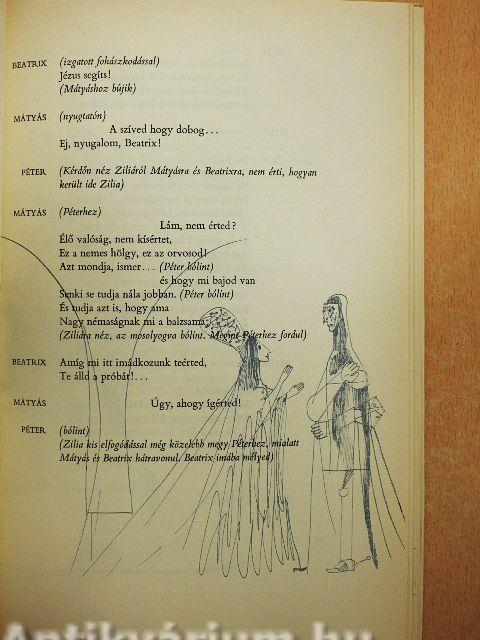 BEATRIX (izgatott fohászkodással)
Jézus segíts!
(Mátyáshoz bújik)
MÁTYÁS (nyugtatón)
A szíved hogy dobog...
Ej, nyugalom, Beatrix!
PÉTER (Kérdőn néz Ziliáról Mátyásra és Beatrixra, nem érti, hogyan
került ide Zilia)
MÁTYÁS (Péterhez)
Lám, nem érted?
Élő valóság, nem kísértet,
Ez a nemes hölgy, ez az orvosod!
Azt mondja, ismer... (Péter bólint)
és hogy mi bajod van
Senki se tudja nála jobban. (Péter bólint)
És tudja azt is, hogy ama
Nagy némaságnak mi a balzsama
(Ziliára néz, az mosolyogva bólint. Megint Péterhez fordul)
BEATRIX Amíg mi itt imádkozunk teérted,
Te álld a próbát!...
MÁTYÁS Úgy, ahogy ígérted!
PÉTER (bólint)
(Zilia kis elfogódással még közelebb megy Péterhez, mialatt
Mátyás és Beatrix hátravonul. Beatrix imába mélyed)
Antikvárium.hu